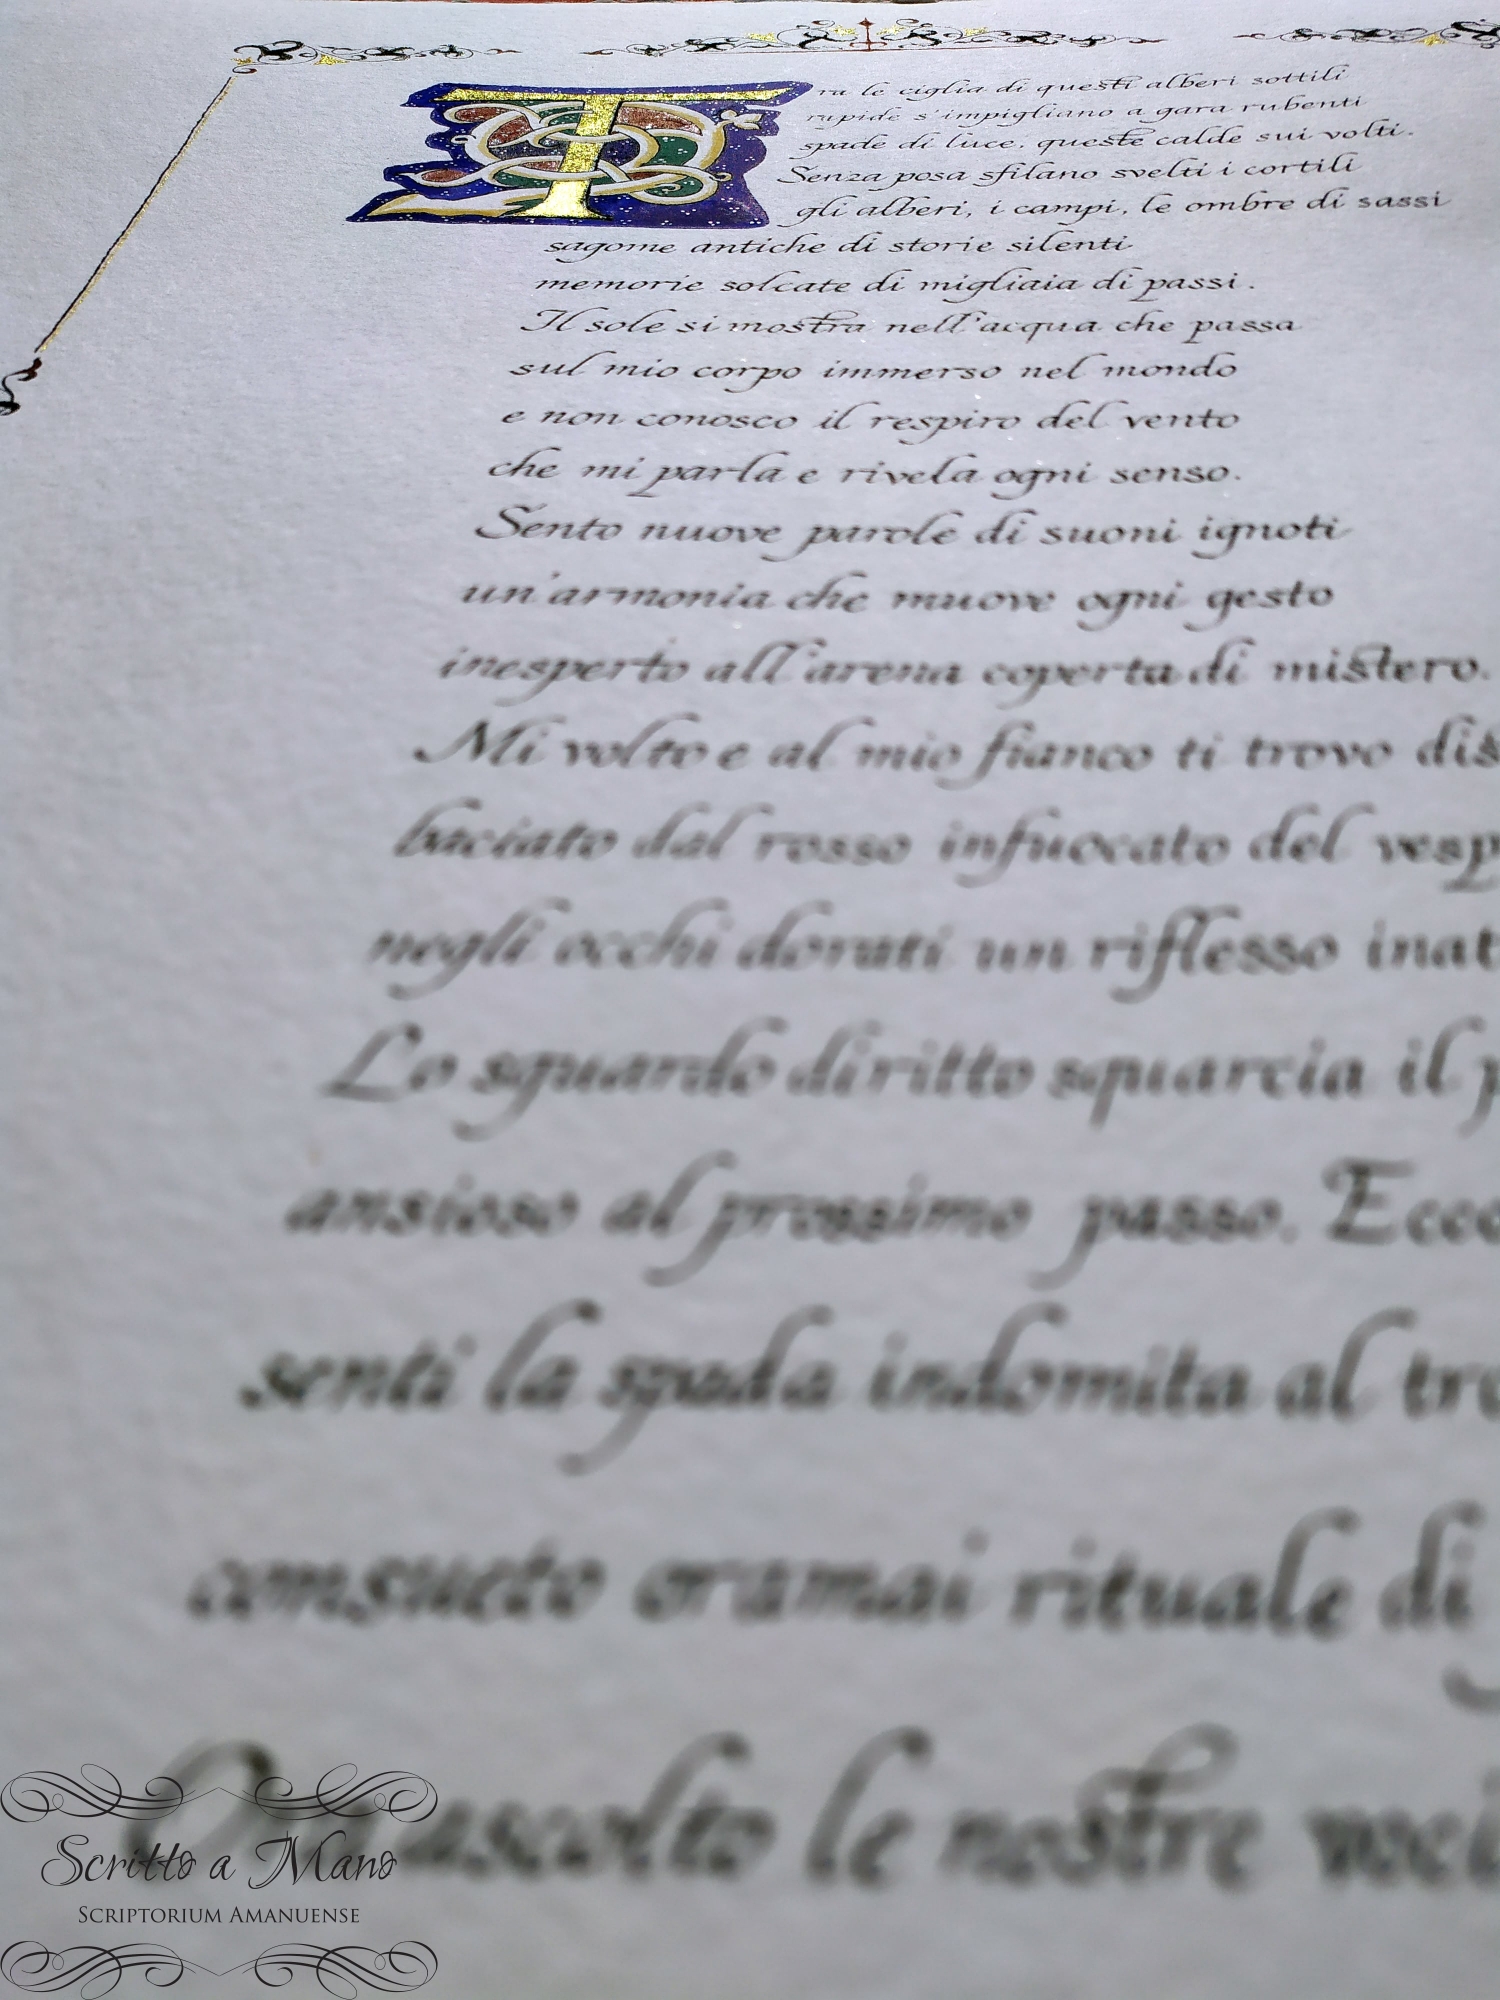 Tra le ciglia di questi alberi sottili
rapide s'impigliano a gara rubenti
spade di luce, queste calde sui volti.
Senza posa sfilano svelti i cortili
gli alberi, i campi, le ombre di sassi
sagome antiche di storie silenti
memorie solcate di migliaia di passi.
Il sole si mostra nell'acqua che passa
sul mio corpo immerso nel mondo
e non conosco il respiro del vento
che mi parla e rivela ogni senso.
Sento nuove parole di suoni ignoti
un'armonia che muove ogni gesto
inesperto all'arena coperta di mistero.
Mi volto e al mio fianco ti trovo
baciato dal rosso infuocato del
negli occhi dorati un riflesso
Lo sguardo diritto squarcia il
ansioso al prossimo passo.
senti la spada indomita al
consueto oramai rituale di
ascolto le nostre
Scritto a Mano
Scriptorium Amanuense